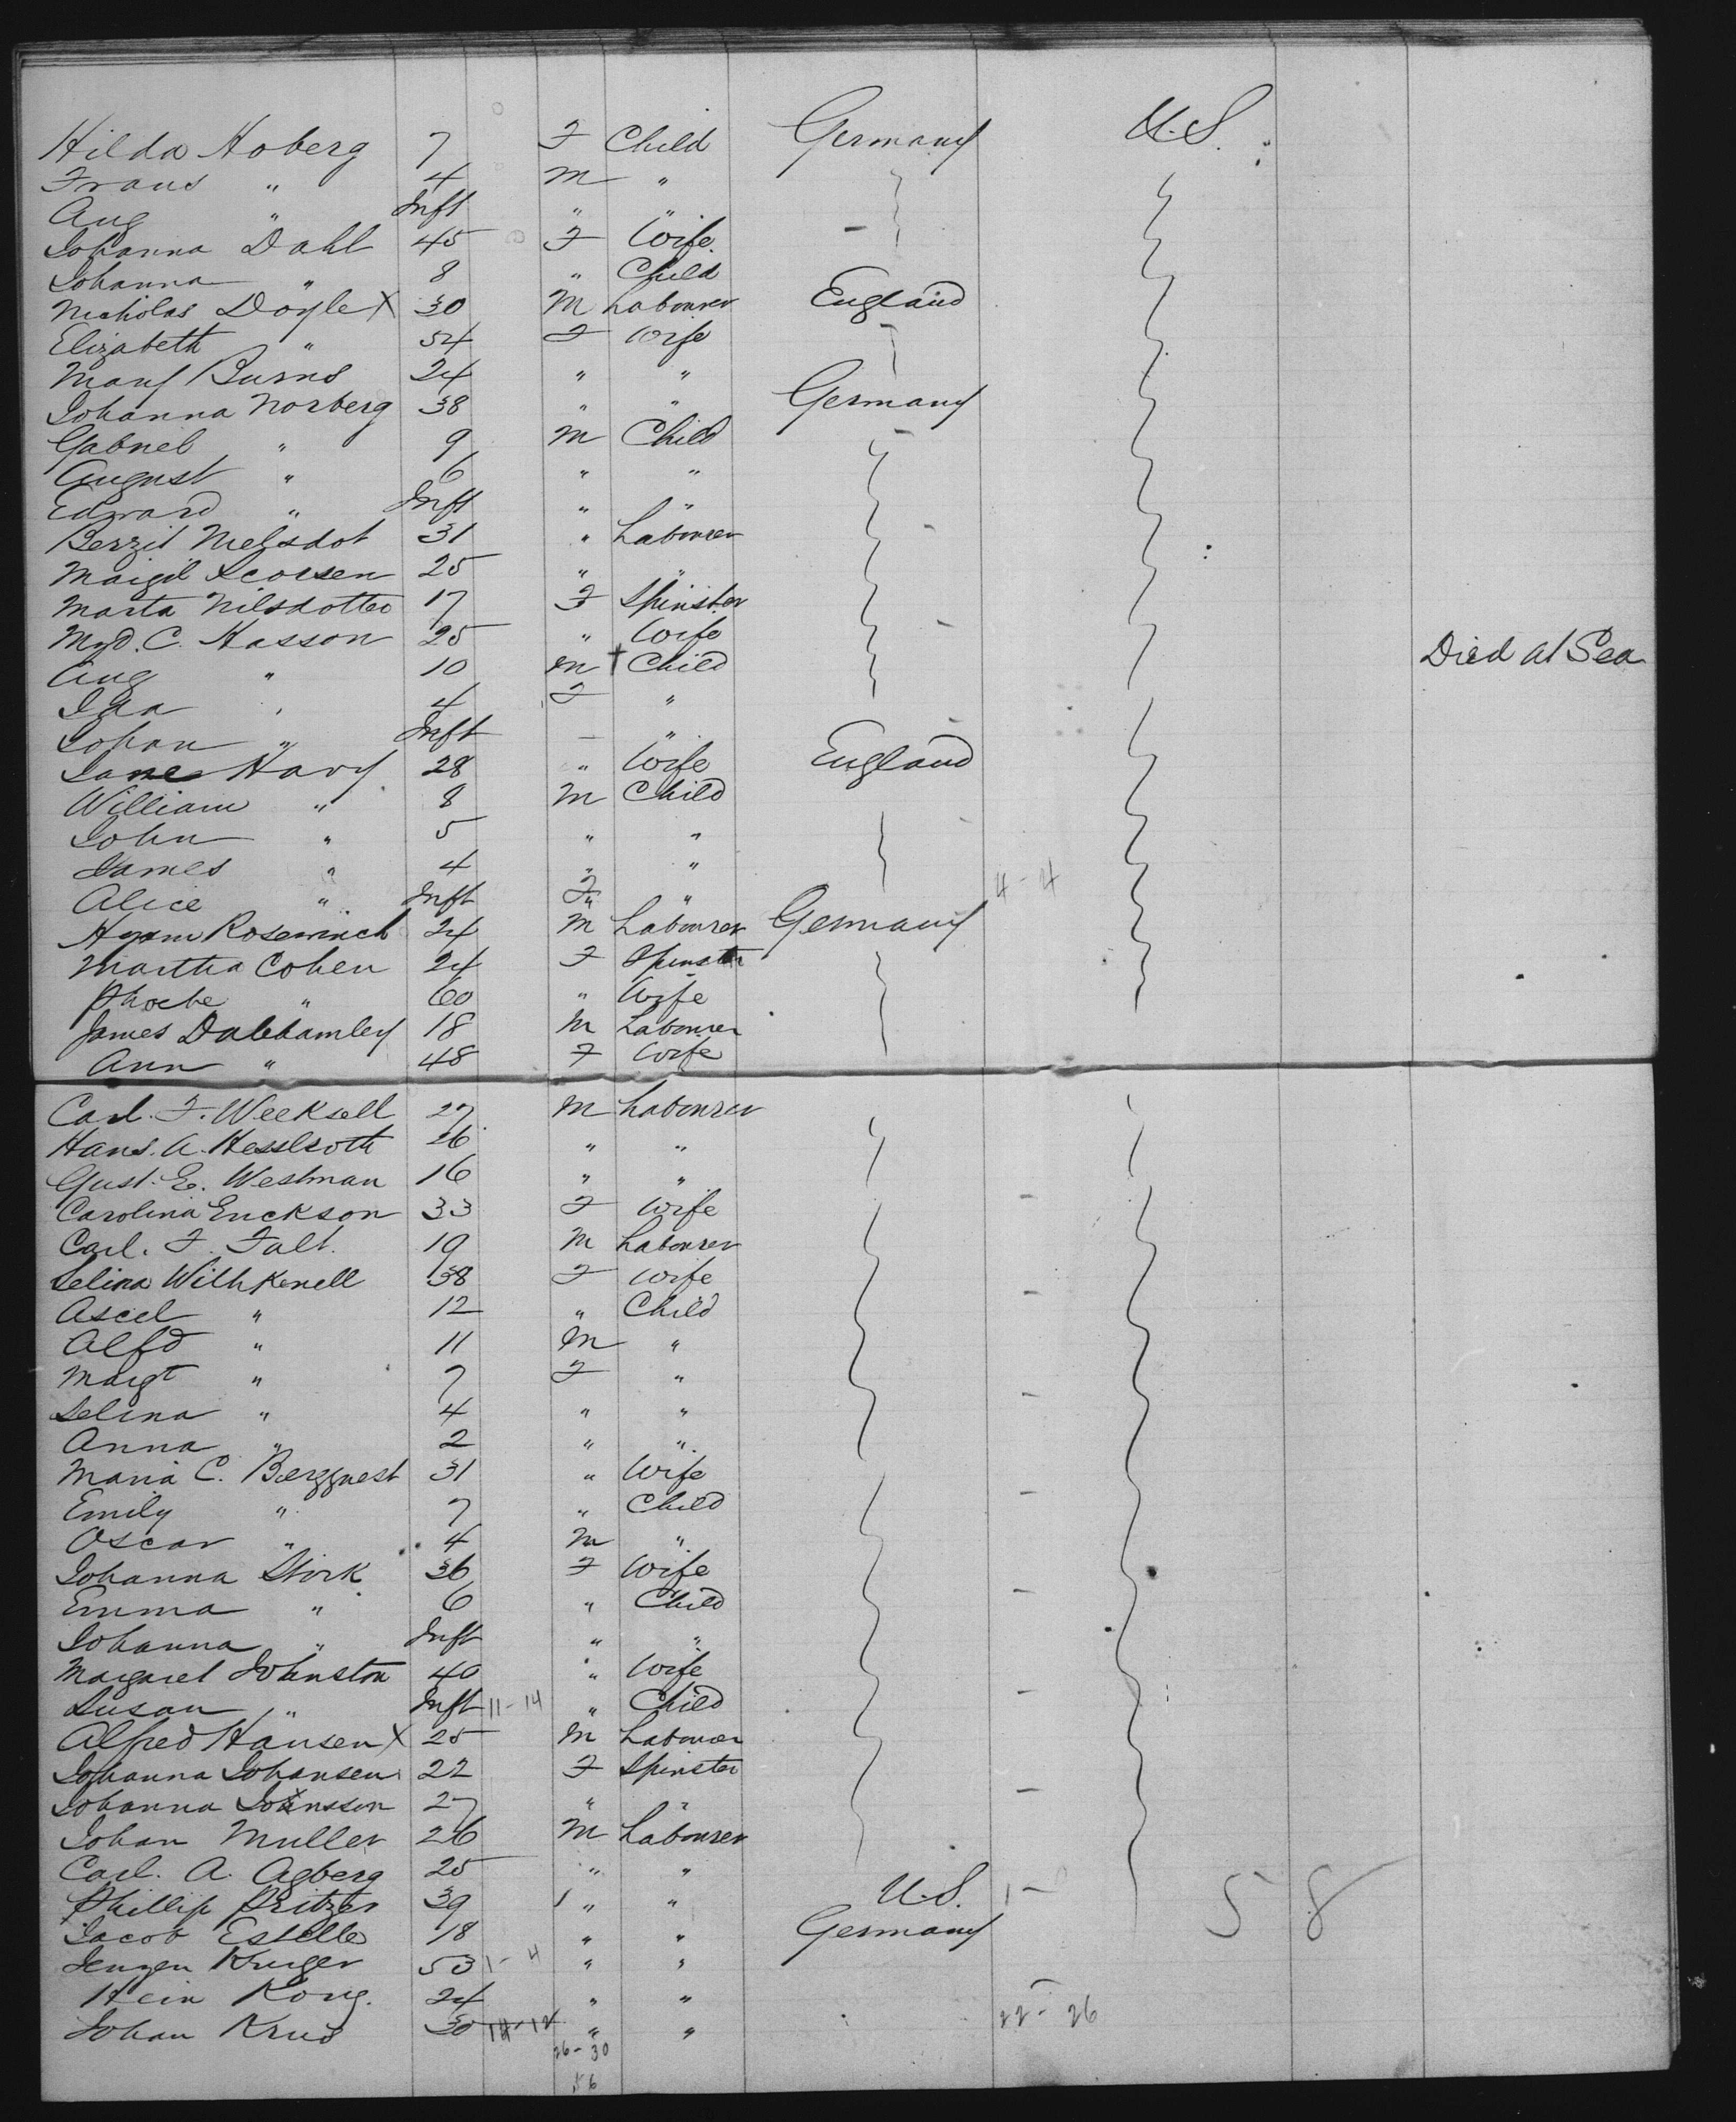 Hilda Hoberg 7 F Child Germany U.S.
Frans " 4 M "
Aug " Inft " "
Johanna Dahl 45 F Wife
Johanna " 8 " Child
Nicholas Doyle X 30 M Labourer England
Elizabeth " 54 F Wife
Mary Burns 24 " "
Johanna Norberg 38 " " Germany
Gabriel " 9 M Child
August " 6 " "
Edward " Inft " "
Berzit 31 " Labourer
25 " "
Marta Nilsdotter 17 F Spinster
C. Hasson 25 " Wife
Aug " 10 M † Child Died at Sea
Ida " 4 F "
Johan " Inft — "
Jane Hary 28 " Wife England
William " 8 M Child
John " 5 " "
James " 4 " "
Alice " Inft F " 4-4
Hyam Rosewinch 24 M Labourer Germany
Martha Cohen 24 F Spinster
Phoebe " 60 " Wife
James Dalehamley 18 M Labourer
Ann " 48 F Wife
Carl. F. Weeksell 27 M Labourer
Hans. A. 26 " "
Gust. E. Westman 16 " "
Carolina Erickson 33 F Wife
Carl. F. Falt. 19 M Labourer
Selina Withkenell 38 F Wife
Ascel " 12 " Child
Alfd " 11 M "
Margt " 7 F "
Selina " 4 " "
Anna " 2 " "
Maria C. Bergquest 31 " Wife
Emily " 7 " Child
Oscar " 4 M "
Johanna Stork 36 F Wife
Emma " 6 " Child
Johanna " Inft " "
Margaret Johnston 40 " Wife
Susan " Inft 11-14 " Child
Alfred Hansen X 25 M Labourer
Johanna Johansen 22 F Spinster
Johanna Johnsson 27 " "
Johan Muller 26 M Labourer
Carl. A. Agberg 25 " "
Phillip Pritzer 39 1 " " U.S. 1- 5 8
Jacob Estelle 18 " " Germany
Kruger 53 1-4 " "
Hein Kong. 24 " "
Johan Krus 30 " " 22-26
26-30
56